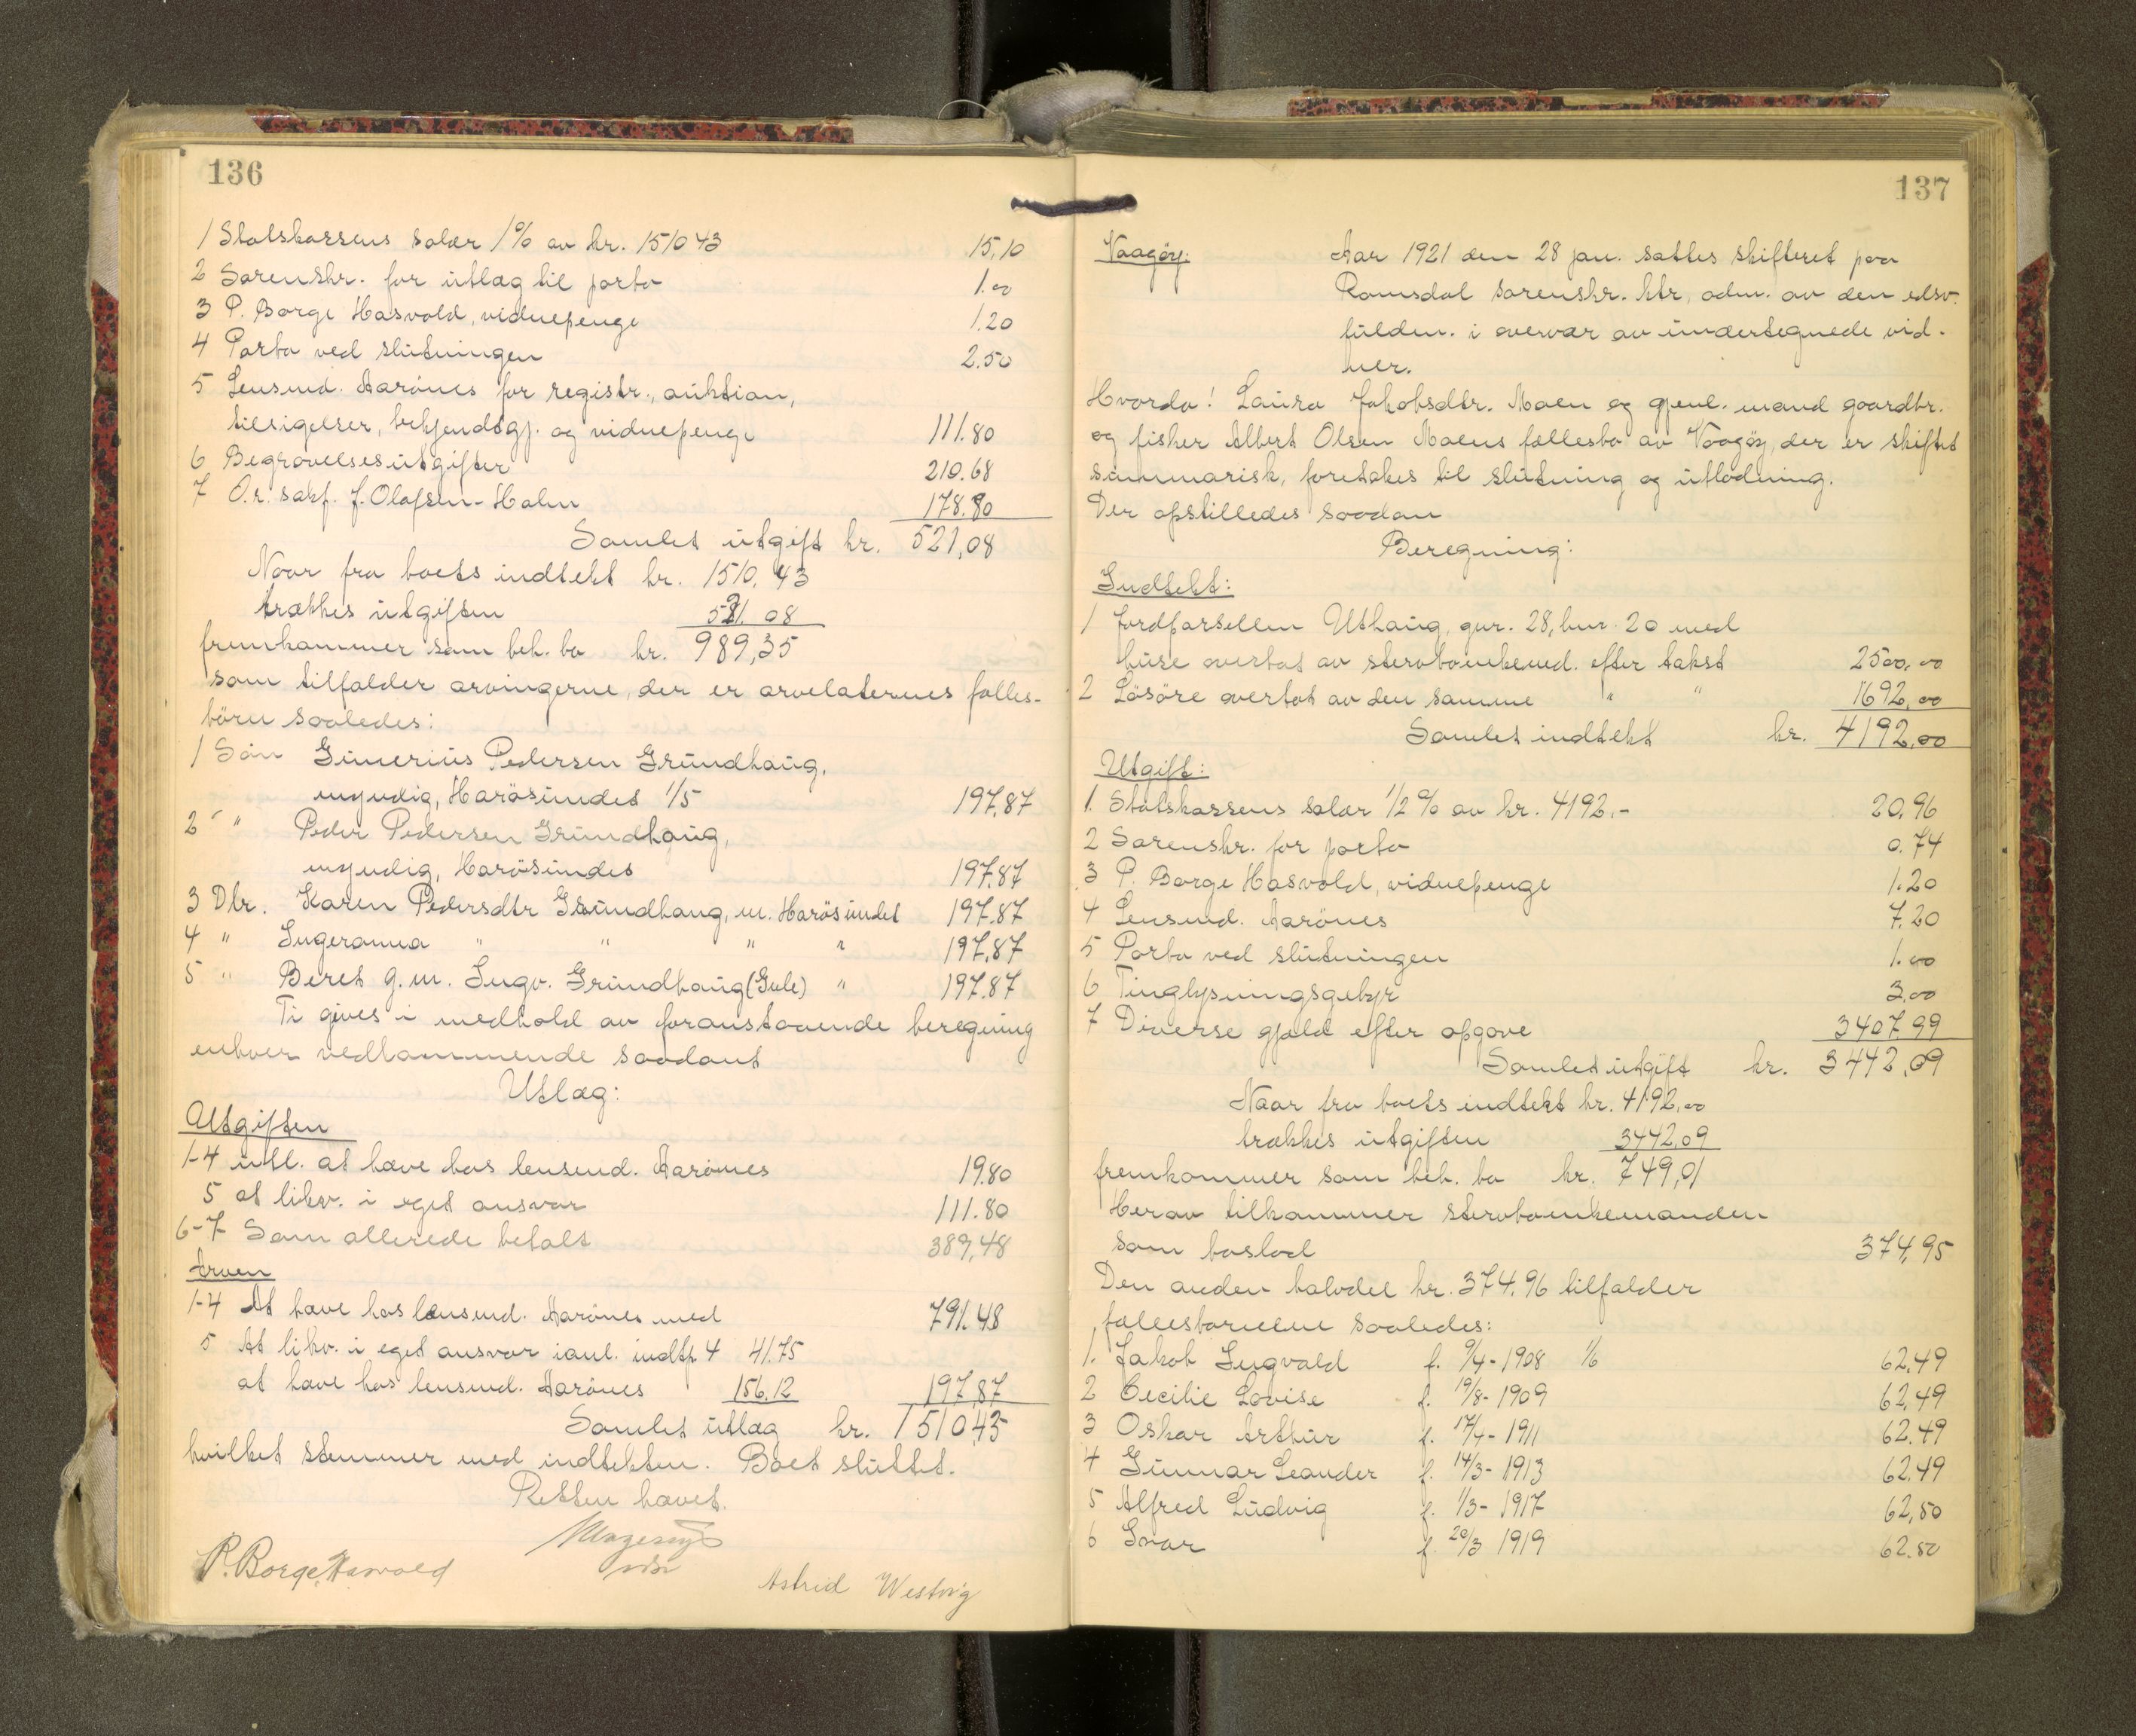 136
1 Statskassens salær 1% av kr. 1510 43 15,10
2 Sorenskr. for utlæg til porto 1.00
3 P. Borge Hasvold, vidnepenge 1.20
4 Porto ved slutningen 2.50
5 Lensmd. Aarönes for registr., auktion,
tilsigelser, bekjendtgj. og vidnepenge 111.80
6 Begravelsesutgifter 210.68
7 O.r. sakf. J. Olafsen-Holm 178.80
Samlet utgift kr. 521,08
Naar fra boets indtekt kr. 1510,43
trækkes utgiften 521.08
fremkommer som beh. bo kr. 989,35
som tilfalder arvingerne, der er arvelaternes fælles-
börn saaledes:
1 Sön Gunerius Pedersen Grundhaug,
myndig, Harösundet 1/5 197,87
2 " Peder Pedersen Grundhaug,
myndig, Harösundet 197.87
3 Dtr. Karen Pedersdtr Grundhaug, m. Harösundet 197.87
4 " Ingeranna " " " " 197,87
5 " Beret g.m. Ingv. Grundhaug (Gule) " 197.87
Ti gives i medhold av foranstaaende beregning
enhver vedkommende saadant
Utlæg:
Utgiften
1-4 utl. at hæve hos lensmd. Aarönes 19.80
5 at likv. i eget ansvar 111.80
6-7 Som allerede betalt 389,48
Arven
1-4 At hæve hos lensmd. Aarönes med 791.48
5 At likv. i eget ansvar ianl. indtp. 4 41.75
at hæve hos lensmd. Aarönes 156.12 197,87
Samlet utlæg kr. 1510,43
hvilket stemmer med indtekten. Boet sluttet.
Retten hævet.
P. Borge Hasvold
Astrid Westvig
137
Vaagöy: Aar 1921 den 28 jan. sattes skifteret paa
Romsdal sorenskr. ktr, adm. av den edsv.
fuldm. i overvær av undertegnede vid-
ner.
Hvorda! Laura Jakobsdtr. Moen og gjenl. mand gaardbr.
og fisker Albert Olsen Moens fællesbo av Vaagöy, der er skiftet
summarisk, foretakes til slutning og utlodning.
Der opstilledes saadan
Beregning:
Indtekt:
1 Jordparsellen Uthaug, gnr. 28, bnr. 20 med
huse overtat av stervboenkemd. efter takst 2500,00
2 Lösöre overtat av den samme " " 1692,00
Samlet indtekt kr. 4192,00
Utgift:
1. Statskassens salær 1/2 % av kr. 4192.- 20,96
2 Sorenskr. for porto 0.74
3 P. Borge Hasvold, vidnepenge 1.20
4 Lensmd. Aarönes 7.20
5 Porto ved slutningen 1.00
6 Tinglysningsgebyr 3,00
7 Diverse gjæld efter opgave 3407.99
Samlet utgift kr. 3442,09
Naar fra boets indtekt kr. 4192,00
trækkes utgiften 3442,09
fremkommer som beh. bo kr. 749,91
Herav tilkommer stervboenkemanden
som boslod 374,95
Den anden halvdel kr. 374.96 tilfalder
fællesbarnene saaledes:
1. Jakob Ingvald f. 9/4-1908 1/6 62,49
2 Cecilie Lovise f. 19/8-1909 62,49
3 Oskar Arthur f. 17/4-1911 62.49
4 Gunnar Leander f. 14/3-1913 62,49
5 Alfred Ludvig f. 1/3-1917 62,50
6 Ivar f. 20/3 1919 62.50